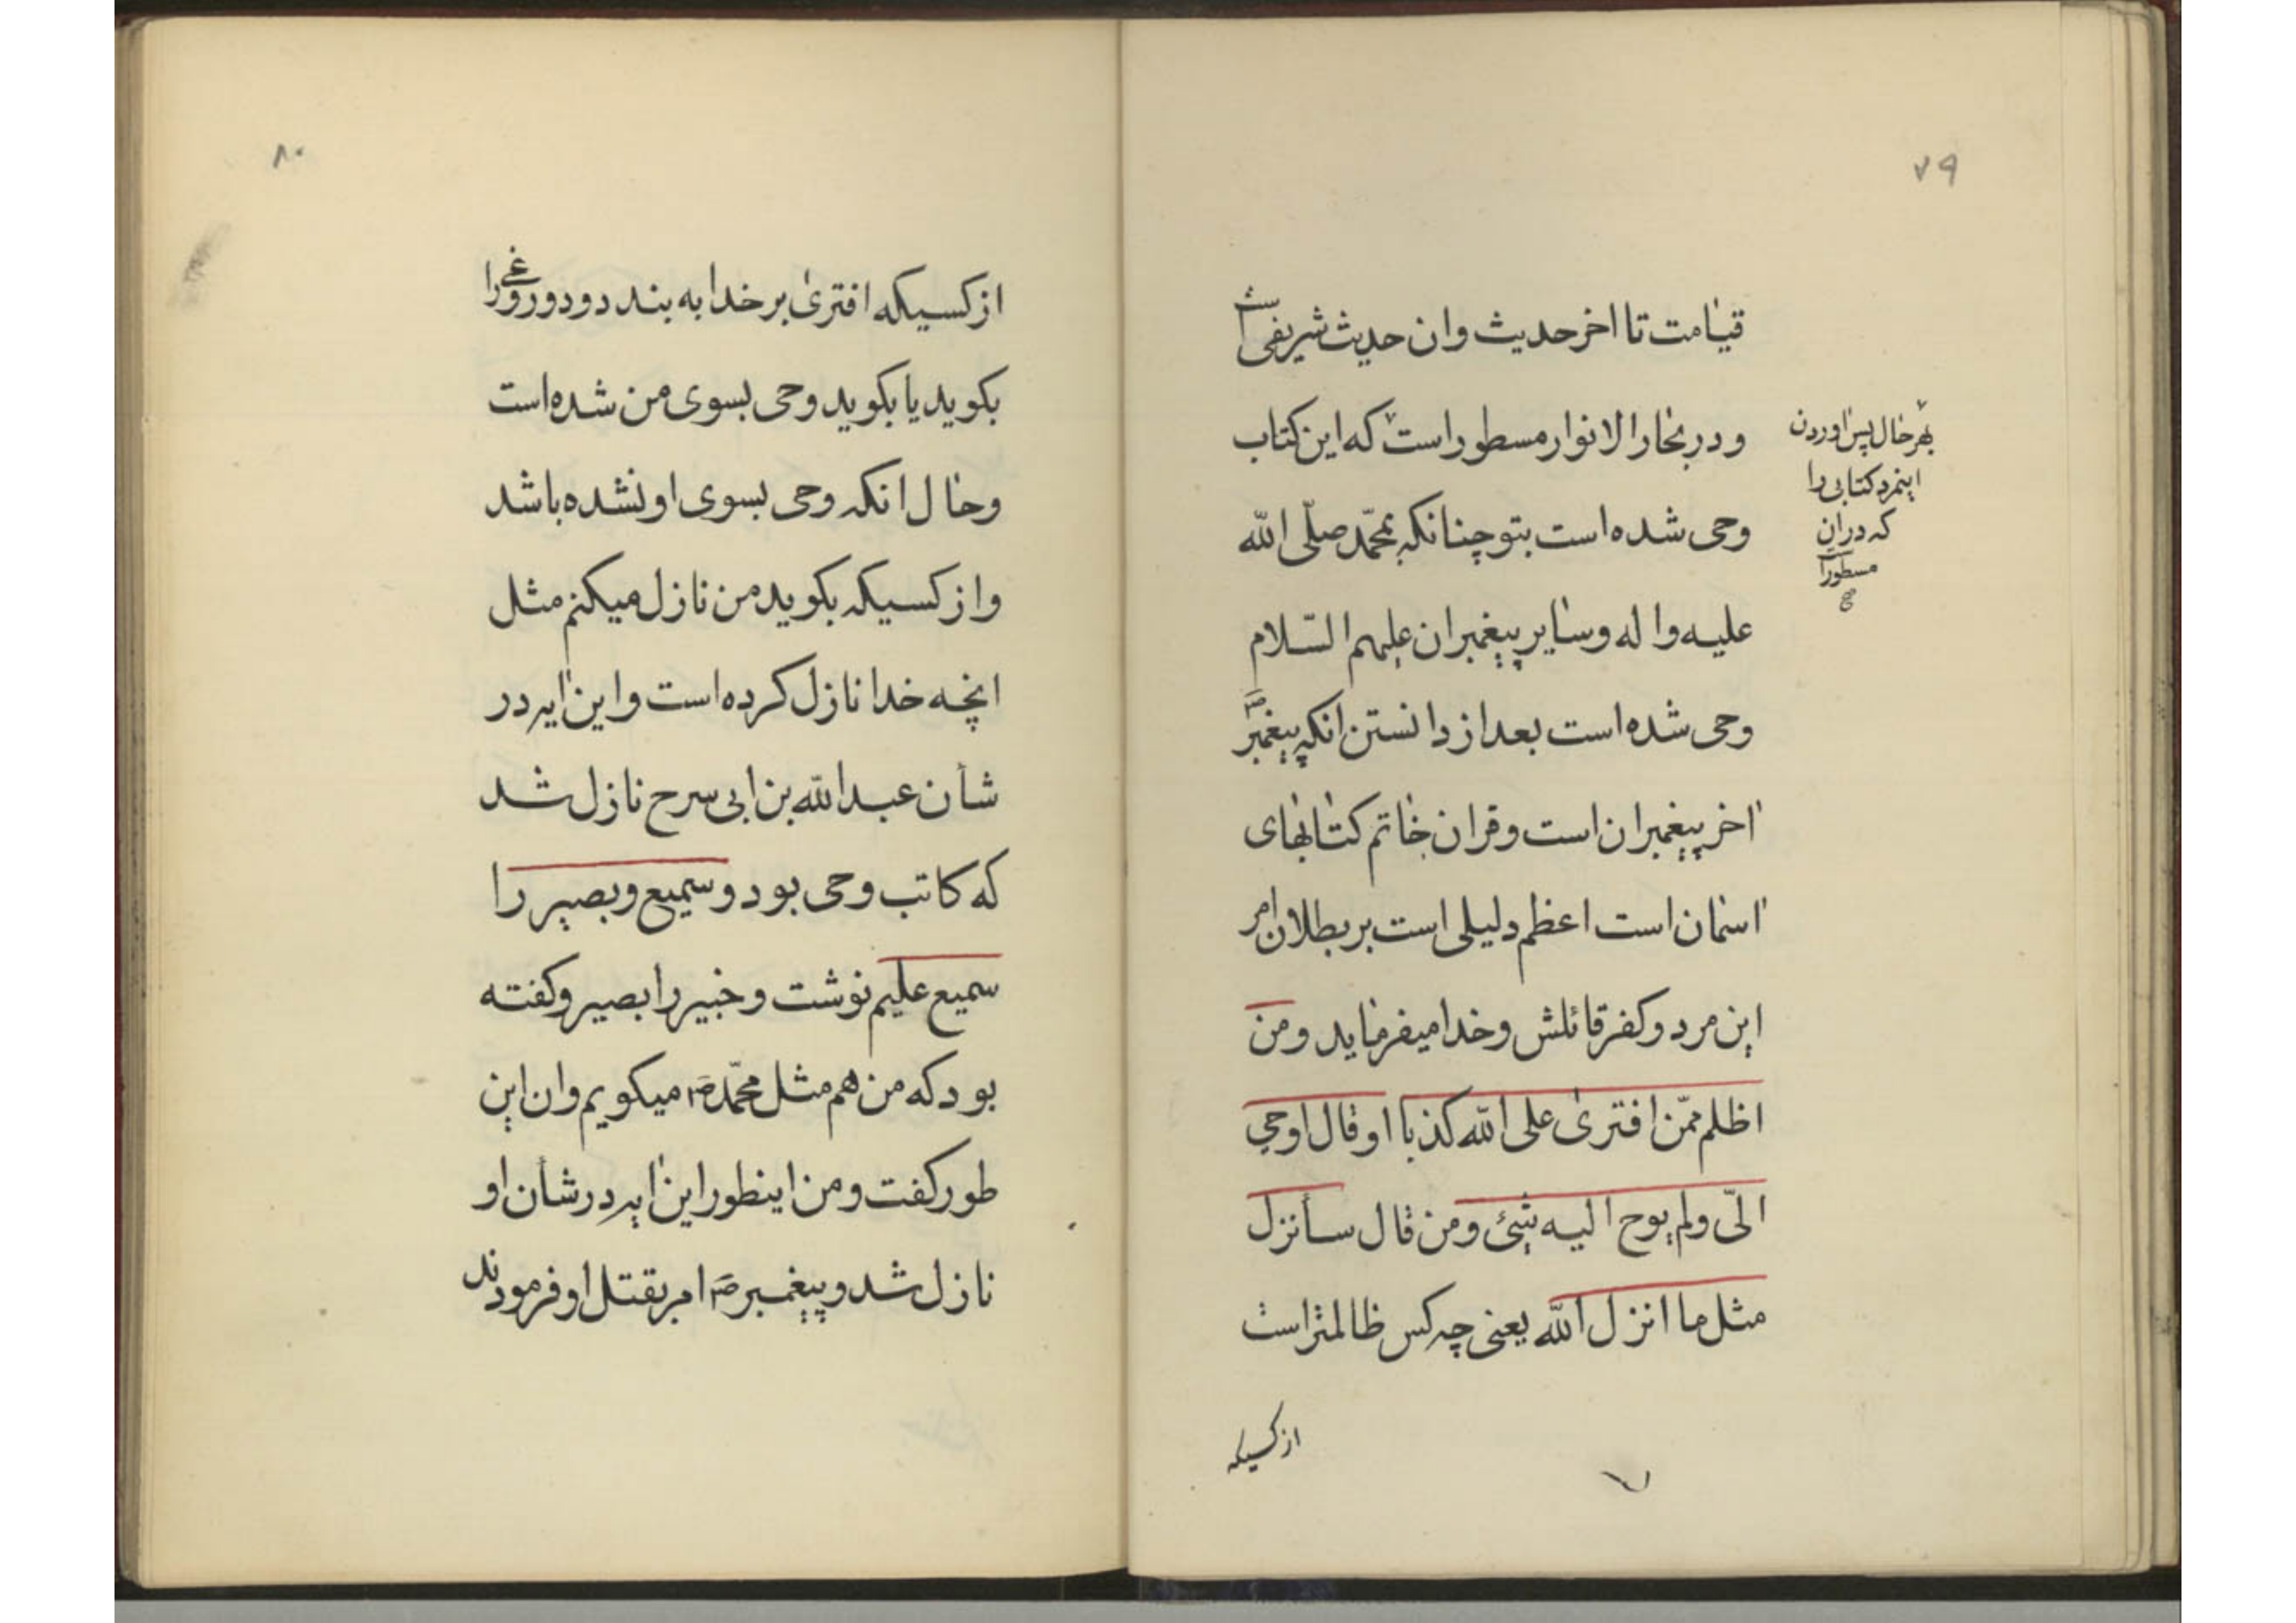 ۷۹
قیامت تا اخر حدیث وان حدیث شریفی است
ودر بحار الانوار مسطور است که این کتاب
وحی شده است بتو چنانکه بمحمّد صلّی الله
علیه واله وسایر پیغمبران علیهم السّلام
وحی شده است بعد از دانستن انکه پیغمبر ص
اخر پیغمبران است وقران خاتم کتابهای
اسمان است اعظم دلیلی است بر بطلان امر
این مرد وکفر قائلش وخدا میفرماید ومن
اظلم ممّن افتری علی الله کذبا او قال اوحی
الیّ ولم یوح الیه شیئ ومن قال سأنزل
مثل ما انزل الله یعنی چه کس ظالمتر است
از کسیکه
بهر حال پس اوردن
اینمرد کتابی را
که دران
مسطور است
صح
۸۰
از کسیکه افتری بر خدا به بندد ودروغی را
بکوید یا بکوید وحی بسوی من شده است
وحال انکه وحی بسوی او نشده باشد
واز کسیکه بکوید من نازل میکنم مثل
انچه خدا نازل کرده است واین ایه در
شأن عبدالله بن ابی سرح نازل شد
که کاتب وحی بود وسمیع وبصیر را
سمیع علیم نوشت وخبیر را بصیر وکفته
بود که من هم مثل محمّد ص میکویم وان این
طور کفت ومن اینطور این ایه در شأن او
نازل شد وپیغمبر ص امر بقتل او فرمودند